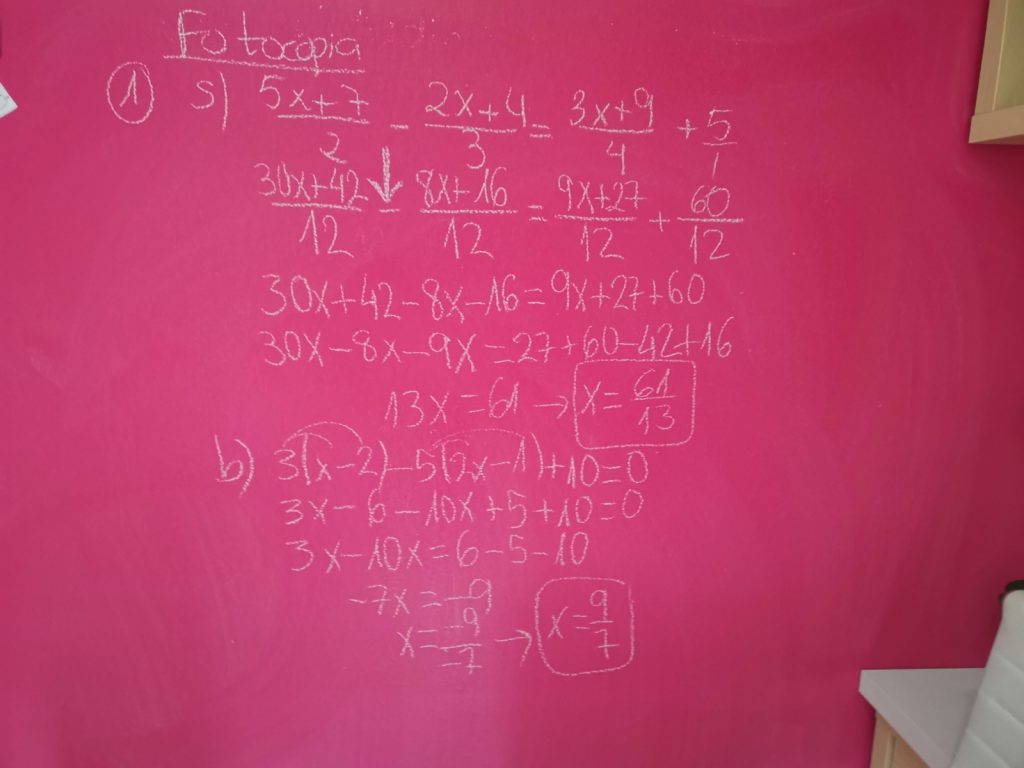 Fotocopia
① s) (5x+7)/2 - (2x+4)/3 = (3x+9)/4 + 5/1
↓
(30x+42)/12 - (8x+16)/12 = (9x+27)/12 + 60/12
30x+42-8x-16=9x+27+60
30x-8x-9x=27+60-42+16
13x=61 → x=61/13
b) 3(x-2)-5(2x-1)+10=0
3x-6-10x+5+10=0
3x-10x=6-5-10
-7x=-9
x=-9/-7 → x=9/7